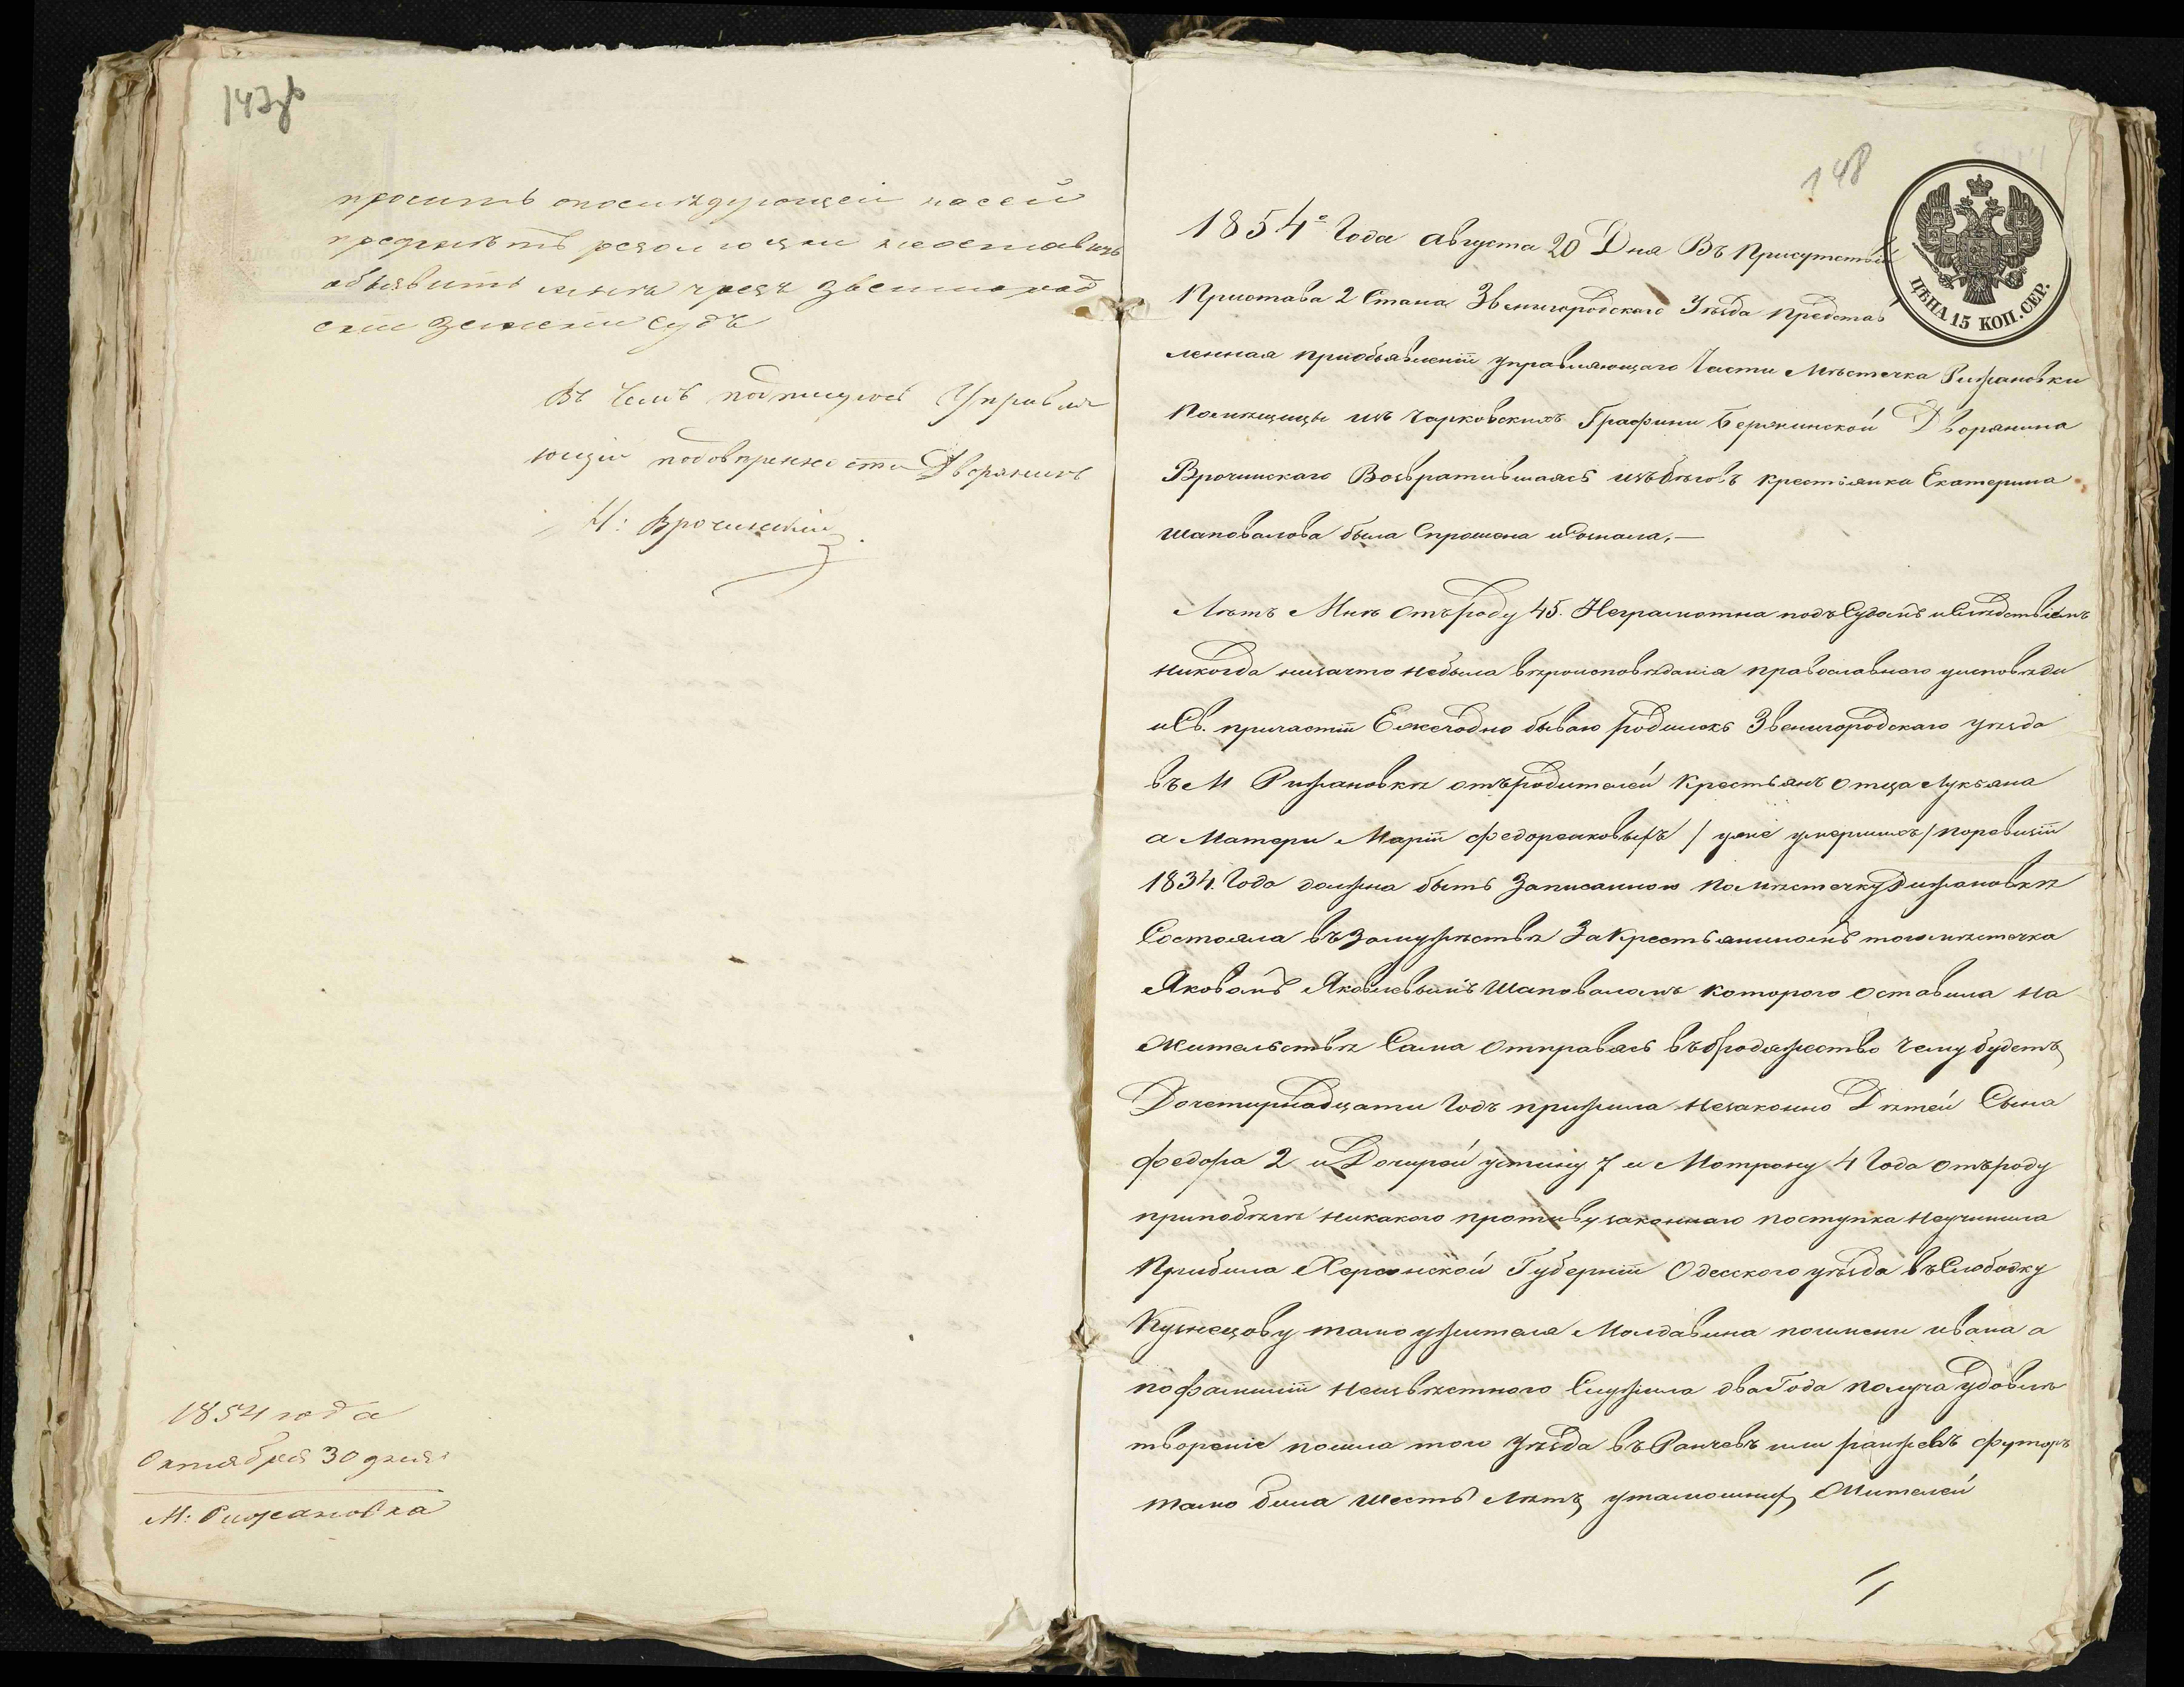 147об
проситъ опослѣдующей насей
предметъ резолюции неоставить
объявить мнѣ чрезъ Звенигород
скій Земскій Судъ
Въ чемъ подпишуюсь Управля
ющій подовѣренности Дворянинъ
Врочинскій
1854 года
Октября 30 дня
М: Рижановка
148
ЦѢНА 15 КОП. СЕР.
1854го Года августа 20 Дня Въ Присутствіи
Пристава 2 Стана Звенигородскаго Уѣзда представ
ленная приобъявленіи управляющаго Части Мѣстечка Рижановки
Помѣщицы изъ Чарковскихъ Графини Бержинской Дворянина
Врочинскаго Возвратившаяся изъ бѣговъ крестьянка Екатерина
Шаповалова была Спрошена и Сознала,—
Лѣтъ Мнѣ отъ роду 45. Неграмотна подъ Судомъ и Слѣдствіемъ
никогда низачто небыла вѣроисповѣданія православнаго уисповѣди
и Св. причастіи Ежегодно бываю родилась Звенигородскаго уѣзда
въ М Рижановкѣ отъ родителей Крестьянъ отца Лукьяна
а Матери Маріи Федоренковыхъ / уже умершихъ / поревизіи
1834. Года должна быть Записанною Помѣстечку Рижановкѣ
Состояла въ Замужествѣ За Крестьяниномъ тогомѣстечка
Яковомъ Яковлевымъ Шаповаломъ которого оставила на
жительствѣ Сама отправясь въ бродяжество чему будетъ
Дочетирнадцати Годъ прижила незаконно Дѣтей Сына
Федора 2 и Дочирей устину 7 и Мотрону 4 Года отъроду
припобѣгѣ никакого противузаконнаго поступка неучинила
Прибила Херсонской Губерніи Одесского уѣзда въ Слободку
Кузнецову тамо ужителя Молдавина поимени ивана а
пофамиліи Неизвѣстного Служила два Года получа удовле
твореніе пошла того Уѣзда въ Ранчевъ или ранжевъ футоръ
тамо била шесть лѣтъ утамошнихъ Жителей